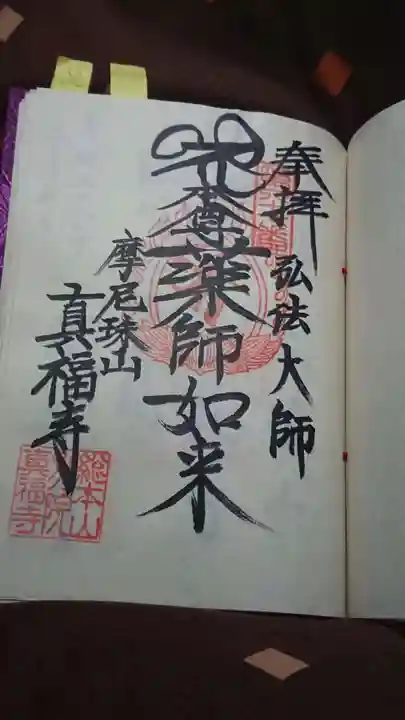 奉拝
弘法大師
本尊薬師如来
摩尼珠山
真福寺
総本山
真福寺